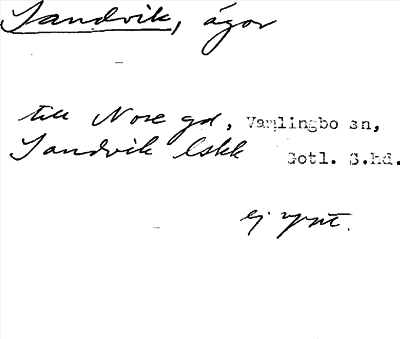 Sandvik, ägor
till Nore gd, Vamlingbo sn,
Sandvik Eskk Gotl. S.hd.
ej uppt.